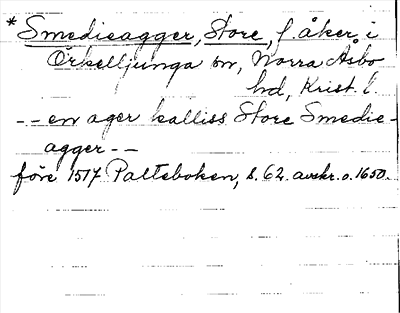 * Smedieagger, Store, f. åker i
Örkelljunga sn, Norra Åsbo
hd, Krist. l.
-- en ager kalliss Store Smedie-
agger --
före 1517 Palteboken, s. 62. avskr. o. 1650.